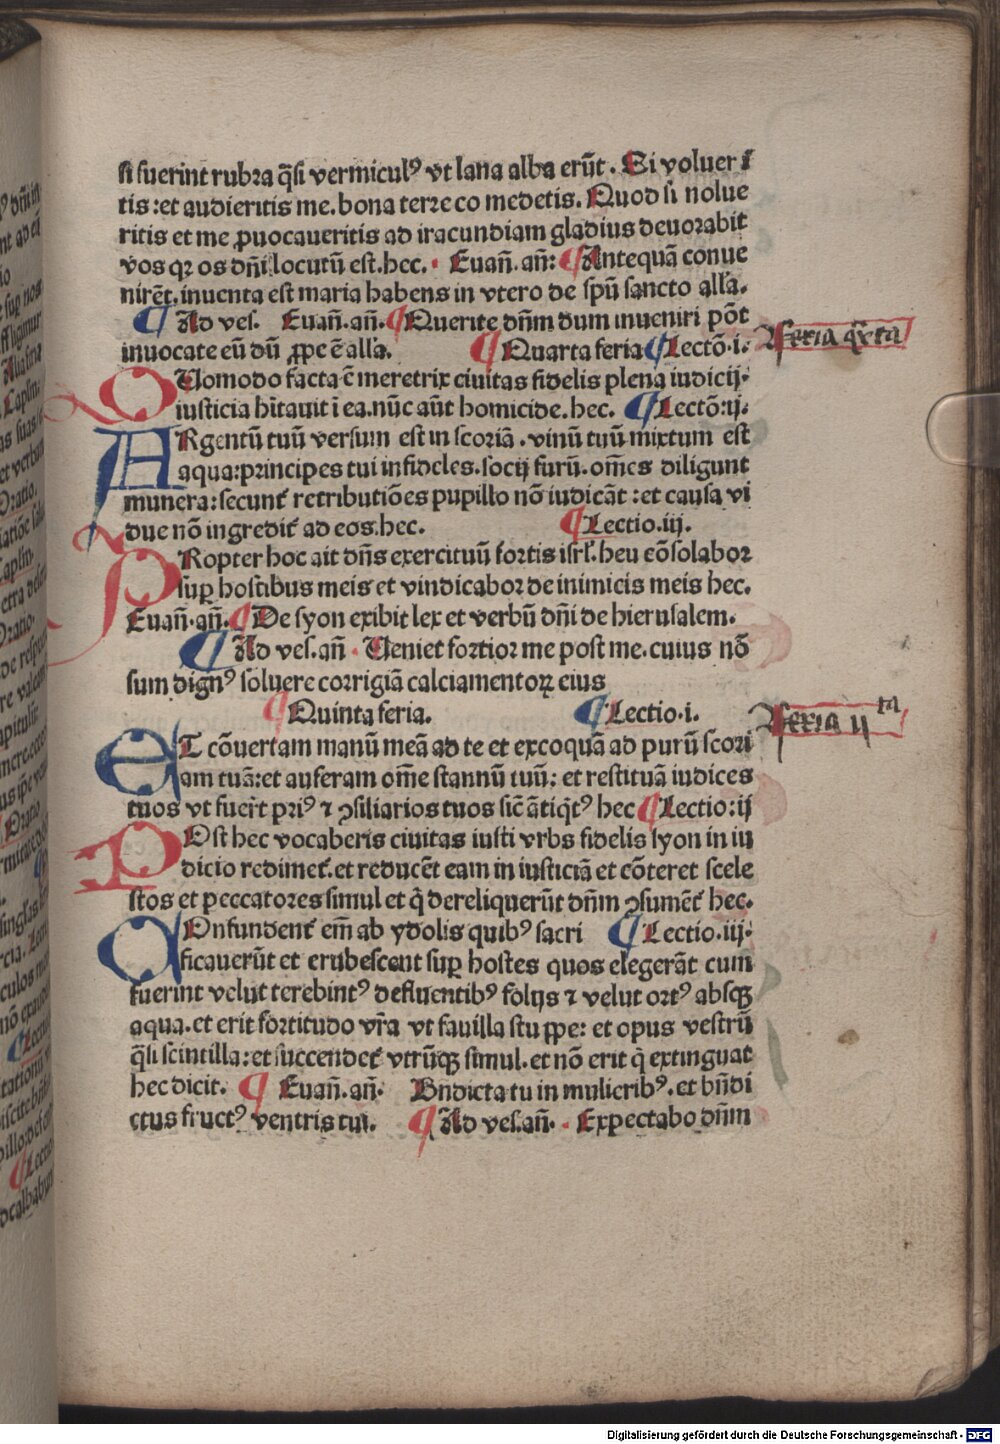 si fuerint rubra q̄si vermicul⁹ vt lana alba erūt. Si volueri
tis: et audieritis me. bona terre co medetis. Quod si nolue
ritis et me ꝓuocaueritis ad iracundiam gladius deuorabit
vos qꝛ os dn̄i locutū est. hec. Euan̄. an̄: ¶Antequā conue
nirēt. inuenta est maria habens in vtero de spū sancto alla.
¶ Ad ves. Euan̄. an̄. ¶Querite dn̄m dum inueniri pōt
inuocate eū dū ꝓpe ē alla. ¶Quarta feria ¶Lectō. i.
feria qrta
QUomodo facta ē meretrix ciuitas fidelis plena iudicij.
iusticia hītauit i ea. nūc aūt homicide. hec. ¶Lectō: ij.
ARgentū tuū versum est in scoriā. vinū tuū mixtum est
aqua: principes tui infideles. socij furū. om̄es diligunt
munera: secunt᷑ retributiōes pupillo nō iudicāt: et causa vi
due nō ingredit᷑ ad eos. hec. ¶Lectio. iij.
PRopter hoc ait dn̄s exercituū fortis isrl̄. heu cōsolabor
suꝑ hostibus meis et vindicabor de inimicis meis hec.
Euan̄. an̄. ¶De syon exibit lex et verbū dn̄i de hierusalem.
¶ Ad ves. an̄ Ueniet fortior me post me. cuius nō
sum dign⁹ soluere corrigiā calciamentoꝝ eius
¶Quinta feria. ¶Lectio. i.
feria ij ta
ET cōuertam manū meā ad te et excoquā ad purū scori
am tuā: et auferam om̄e stannū tuū: et restituā iudices
tuos vt fuer̄t pri⁹ ⁊ ꝯsiliarios tuos sic̄ ātiq̇t⁹ hec ¶Lectio: ij
POst hec vocaberis ciuitas iusti vrbs fidelis syon in iu
dicio redimet᷑. et reducēt eam in iusticiā et cōteret scele
stos et peccatores simul et q̇ dereliquerūt dn̄m ꝯsument᷑ hec.
COnfundent᷑ em̄ ab ydolis quib⁹ sacri ¶Lectio. iij.
ficauerūt et erubescent suꝑ hostes quos elegerāt cum
fuerint velut terebint⁹ defluentib⁹ folijs ⁊ velut ort⁹ absqꝫ
aqua. et erit fortitudo vr̄a vt fauilla stuppe: et opus vestrū
q̄si scintilla: et succendet᷑ vtrūqꝫ simul. et nō erit q̇ extinguat
hec dicit. ¶ Euan̄. an̄. Bn̄dicta tu in mulierib⁹. et bn̄di
ctus fruct⁹ ventris tui. ¶Ad ves. an̄. Expectabo dn̄m
Digitalisierung gefördert durch die Deutsche Forschungsgemeinschaft - DFG